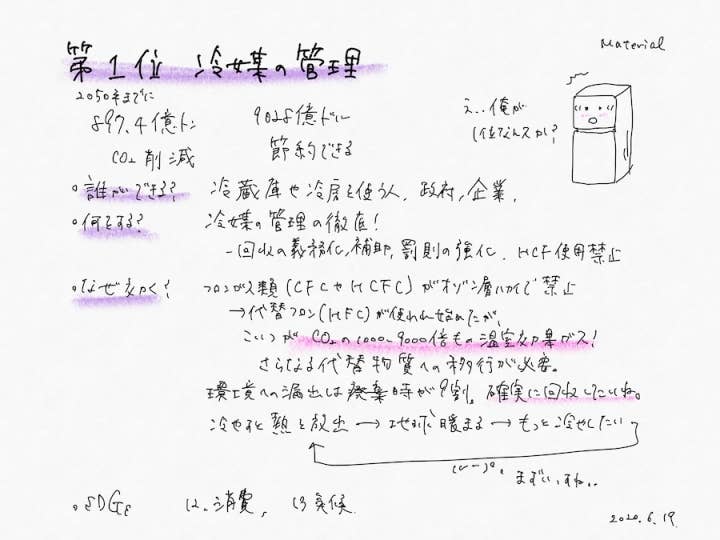 Material
第1位 冷媒の管理
2050年までに
897.4億トン
CO2削減
9028億ドル
節約できる
え..俺が
1位なんスか?
・誰ができる? 冷蔵庫や冷房を使う人、政府、企業、
・何をする? 冷媒の管理の徹底!
–回収の義務化、補助、罰則の強化、HCF使用禁止
・なぜ効く? フロンガス類(CFCやHCFC)がオゾン層ハカイで禁止
→代替フロン(HFC)が使われ始めたが、
こいつがCO2の1000~9000倍もの温室効果ガス!
さらなる代替物質への移行が必要。
環境への漏出は廃棄時が9割。確実に回収したいね。
冷やすと熱を放出→地球暖まる→もっと冷やしたい
まずいっすね..
・SDGs 12.消費, 13気候
2020.6.19